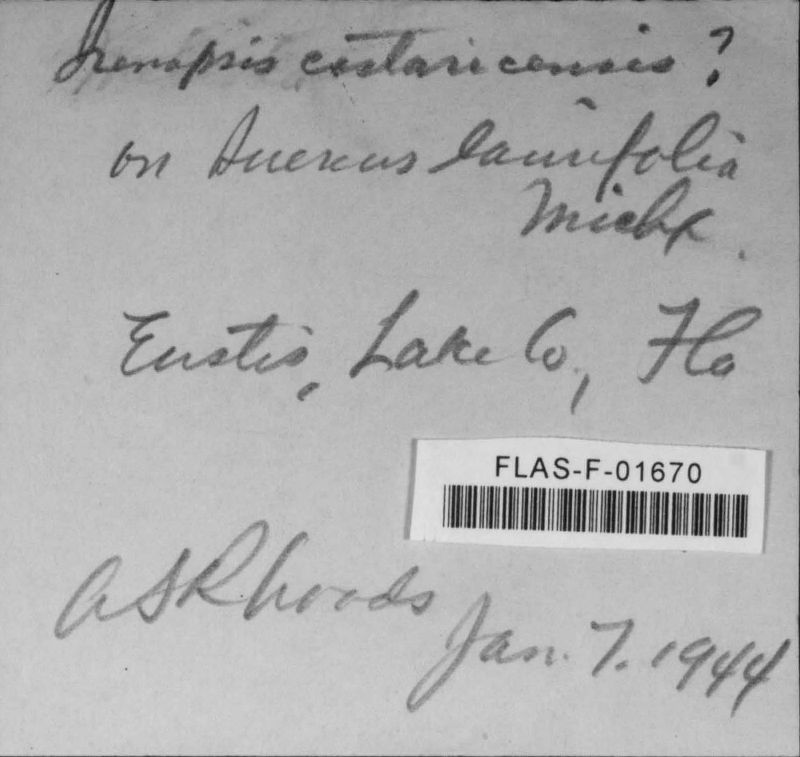 Irenopsis costaricensis ?
on Quercus laurifolia
Michx.
Eustis, Lake Co, Fla
FLAS-F-01670
A S Rhoads
Jan. 7. 1944